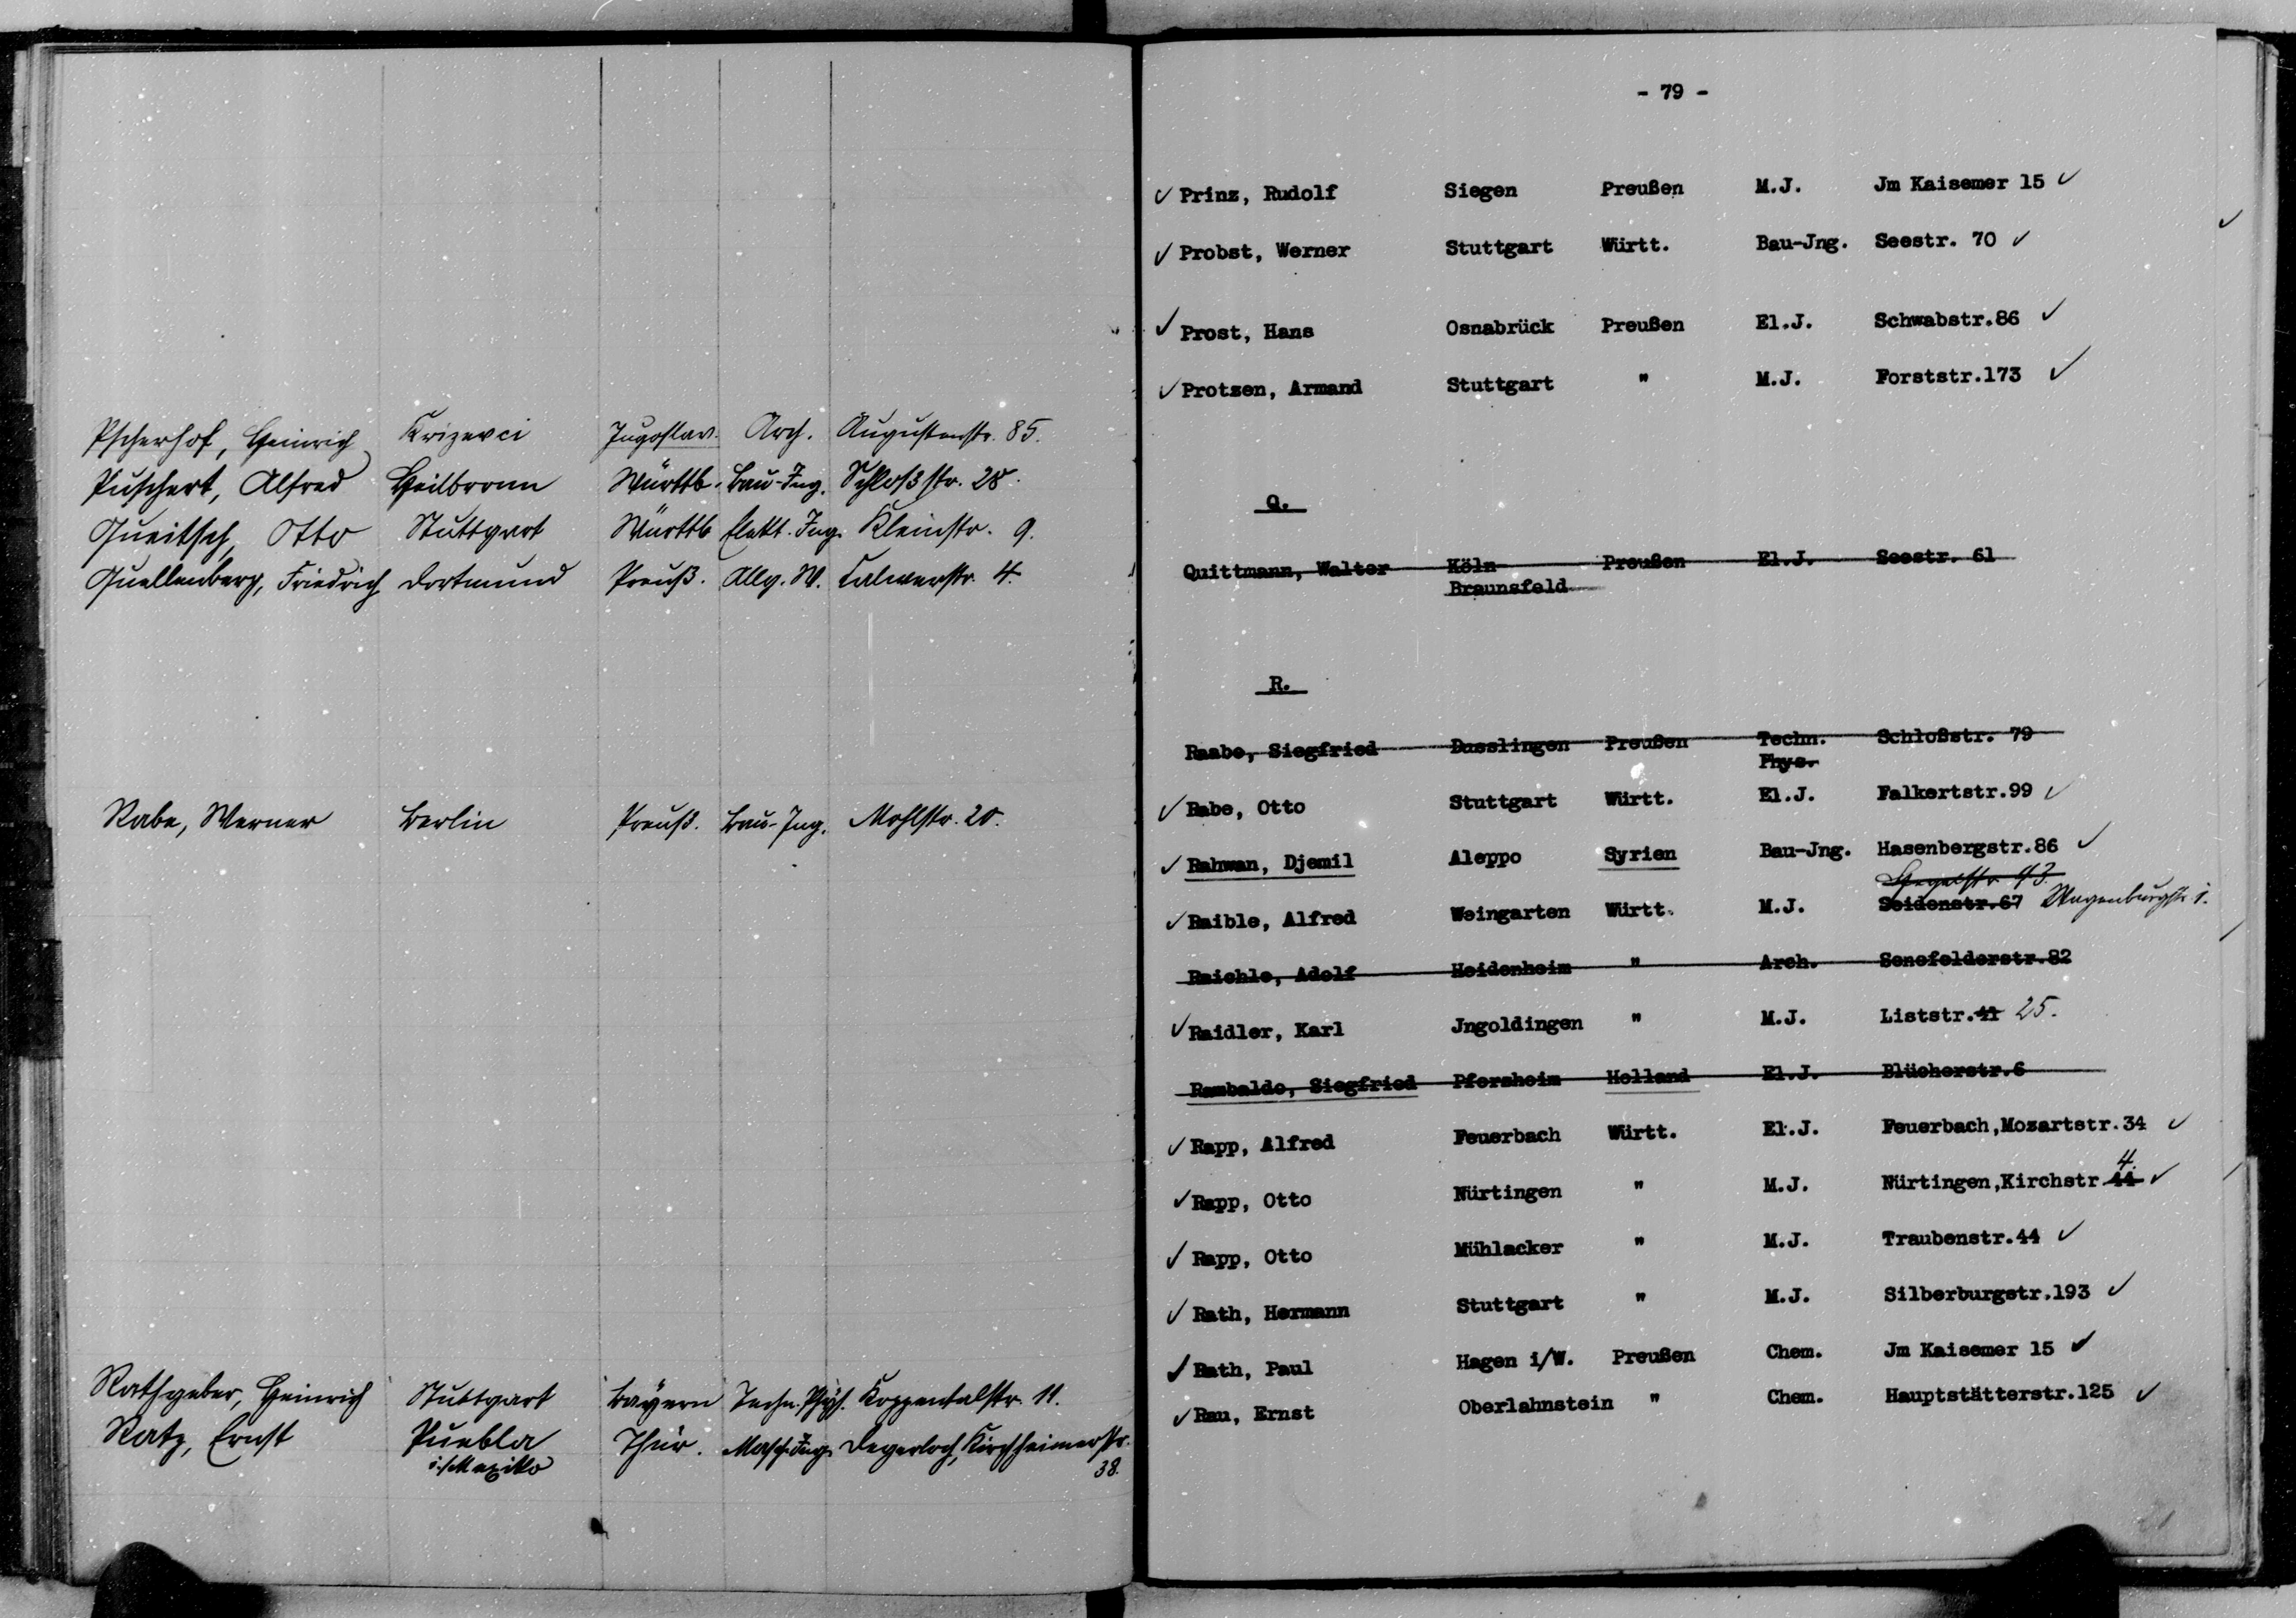 Pscherhof, Heinrich Krizevci Jugoslav. Arch. Augustenstr. 85.
Puschert, Alfred Heilbronn Württb. Bau-Ing. Schloßstr. 28.
Queitsch, Otto Stuttgart Württb Elekt. Ing. Kleinstr. 9.
Quellenberg, Friedrich Dortmund Preuß. Allg. W. Calwerstr. 4.
Rabe, Werner Berlin Preuß. Bau-Ing. Mohlstr. 20.
Rathgeber, Heinrich Stuttgart Bayern Techn. Phys. Koppentalstr. 11.
Ratz, Ernst Puebla Thür. Masch. Ing. Degerloch, Kirchheimerstr.
i./Mexiko 38.
- 79 -
Prinz, Rudolf Siegen Preußen M.J. Jm Kaisemer 15
Probst, Werner Stuttgart Württ. Bau-Jng. Seestr. 70
Prost, Hans Osnabrück Preußen El.J. Schwabstr.86
Protzen, Armand Stuttgart " M.J. Forststr.173
Q.
Quittmann, Walter Köln Preußen El.J. Seestr. 61
Braunsfeld
R.
Raabe, Siegfried Dusslingen Preußen Techn. Schloßstr. 79
Phys.
Rabe, Otto Stuttgart Württ. El.J. Falkertstr.99
Rahwan, Djemil Aleppo Syrien Bau-Jng. Hasenbergstr.86
Hegelstr. 43.
Raible, Alfred Weingarten Württ. M.J. Seidenstr.67 Wagenburgstr. 1.
Raichle, Adolf Heidenheim " Arch. Senefelderstr.82
Raidler, Karl Jngoldingen " M.J. Liststr.41 25.
Rambaldo, Siegfried Pforzheim Holland El.J. Blücherstr.6
Rapp, Alfred Feuerbach Württ. El.J. Feuerbach,Mozartstr.34
4.
Rapp, Otto Nürtingen " M.J. Nürtingen,Kirchstr 44
Rapp, Otto Mühlacker " M.J. Traubenstr.44
Rath, Hermann Stuttgart " M.J. Silberburgstr.193
Rath, Paul Hagen i/W. Preußen Chem. Jm Kaisemer 15
Rau, Ernst Oberlahnstein " Chem. Hauptstätterstr.125